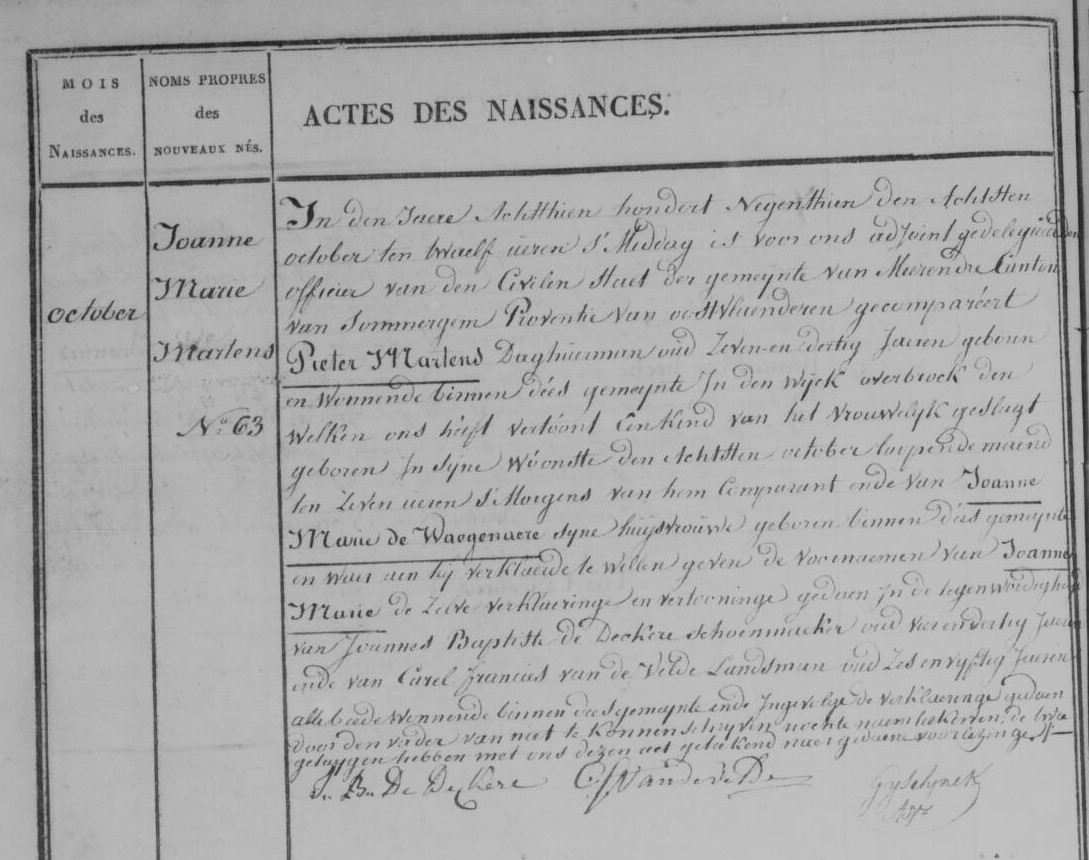 MOIS
des
NAISSANCES.
NOMS PROPRES
des
NOUVEAUX NÉS.
ACTES DES NAISSANCES.
october
Joanne
Marie
Martens
N.º 63
In den Jaere Achthien hondert Negenthien den Achtsten
october ten twaelf ueren s'Middag is voor ons adjoint gedelegueerden
officier van den Civilen Staet der gemeynte van Meerendre Canton
van Sommergem Proventie van oostvlaenderen gecomparéert
Pieter Martens Daghuerman oud Zeven-en dertig Jaeren geboren
en Wonnende binnen déés gemeynte In den Wyck overbroek den
Welken ons hééft vertóónt Een kind van het vrouwelyk geslagt
geboren In syne Wóónstte den Achtsten october loopende maend
ten Zeven ueren s'Morgens van hem Comparant ende van Joanne
Marie de Waegenaere syne huysvrouwe geboren binnen déés gemeynte
en waer aen hij verklaerde te willen geven de voornaemen van Joanne
Marie de Zelve verklaeringe en vertooninge gedaen In de tegenwoordigheyd
van Joannes Baptiste de Deckere schoenmaeker oud vier en dertig Jaeren
ende van Carel francies van de Velde Landsman oud Zes en vyftig Jaeren
alle beede Wonnende binnen dees gemeynte ende Ingevolge de verklaerenge gedaen
door den vader van niet te konnen schryven nochte naemteekenen, de twee
getuygen hebben met ons dezen act geteekend naer gedaene voorlezinge
J. B. De Deckere
C f Van de Velde
Gyselynck